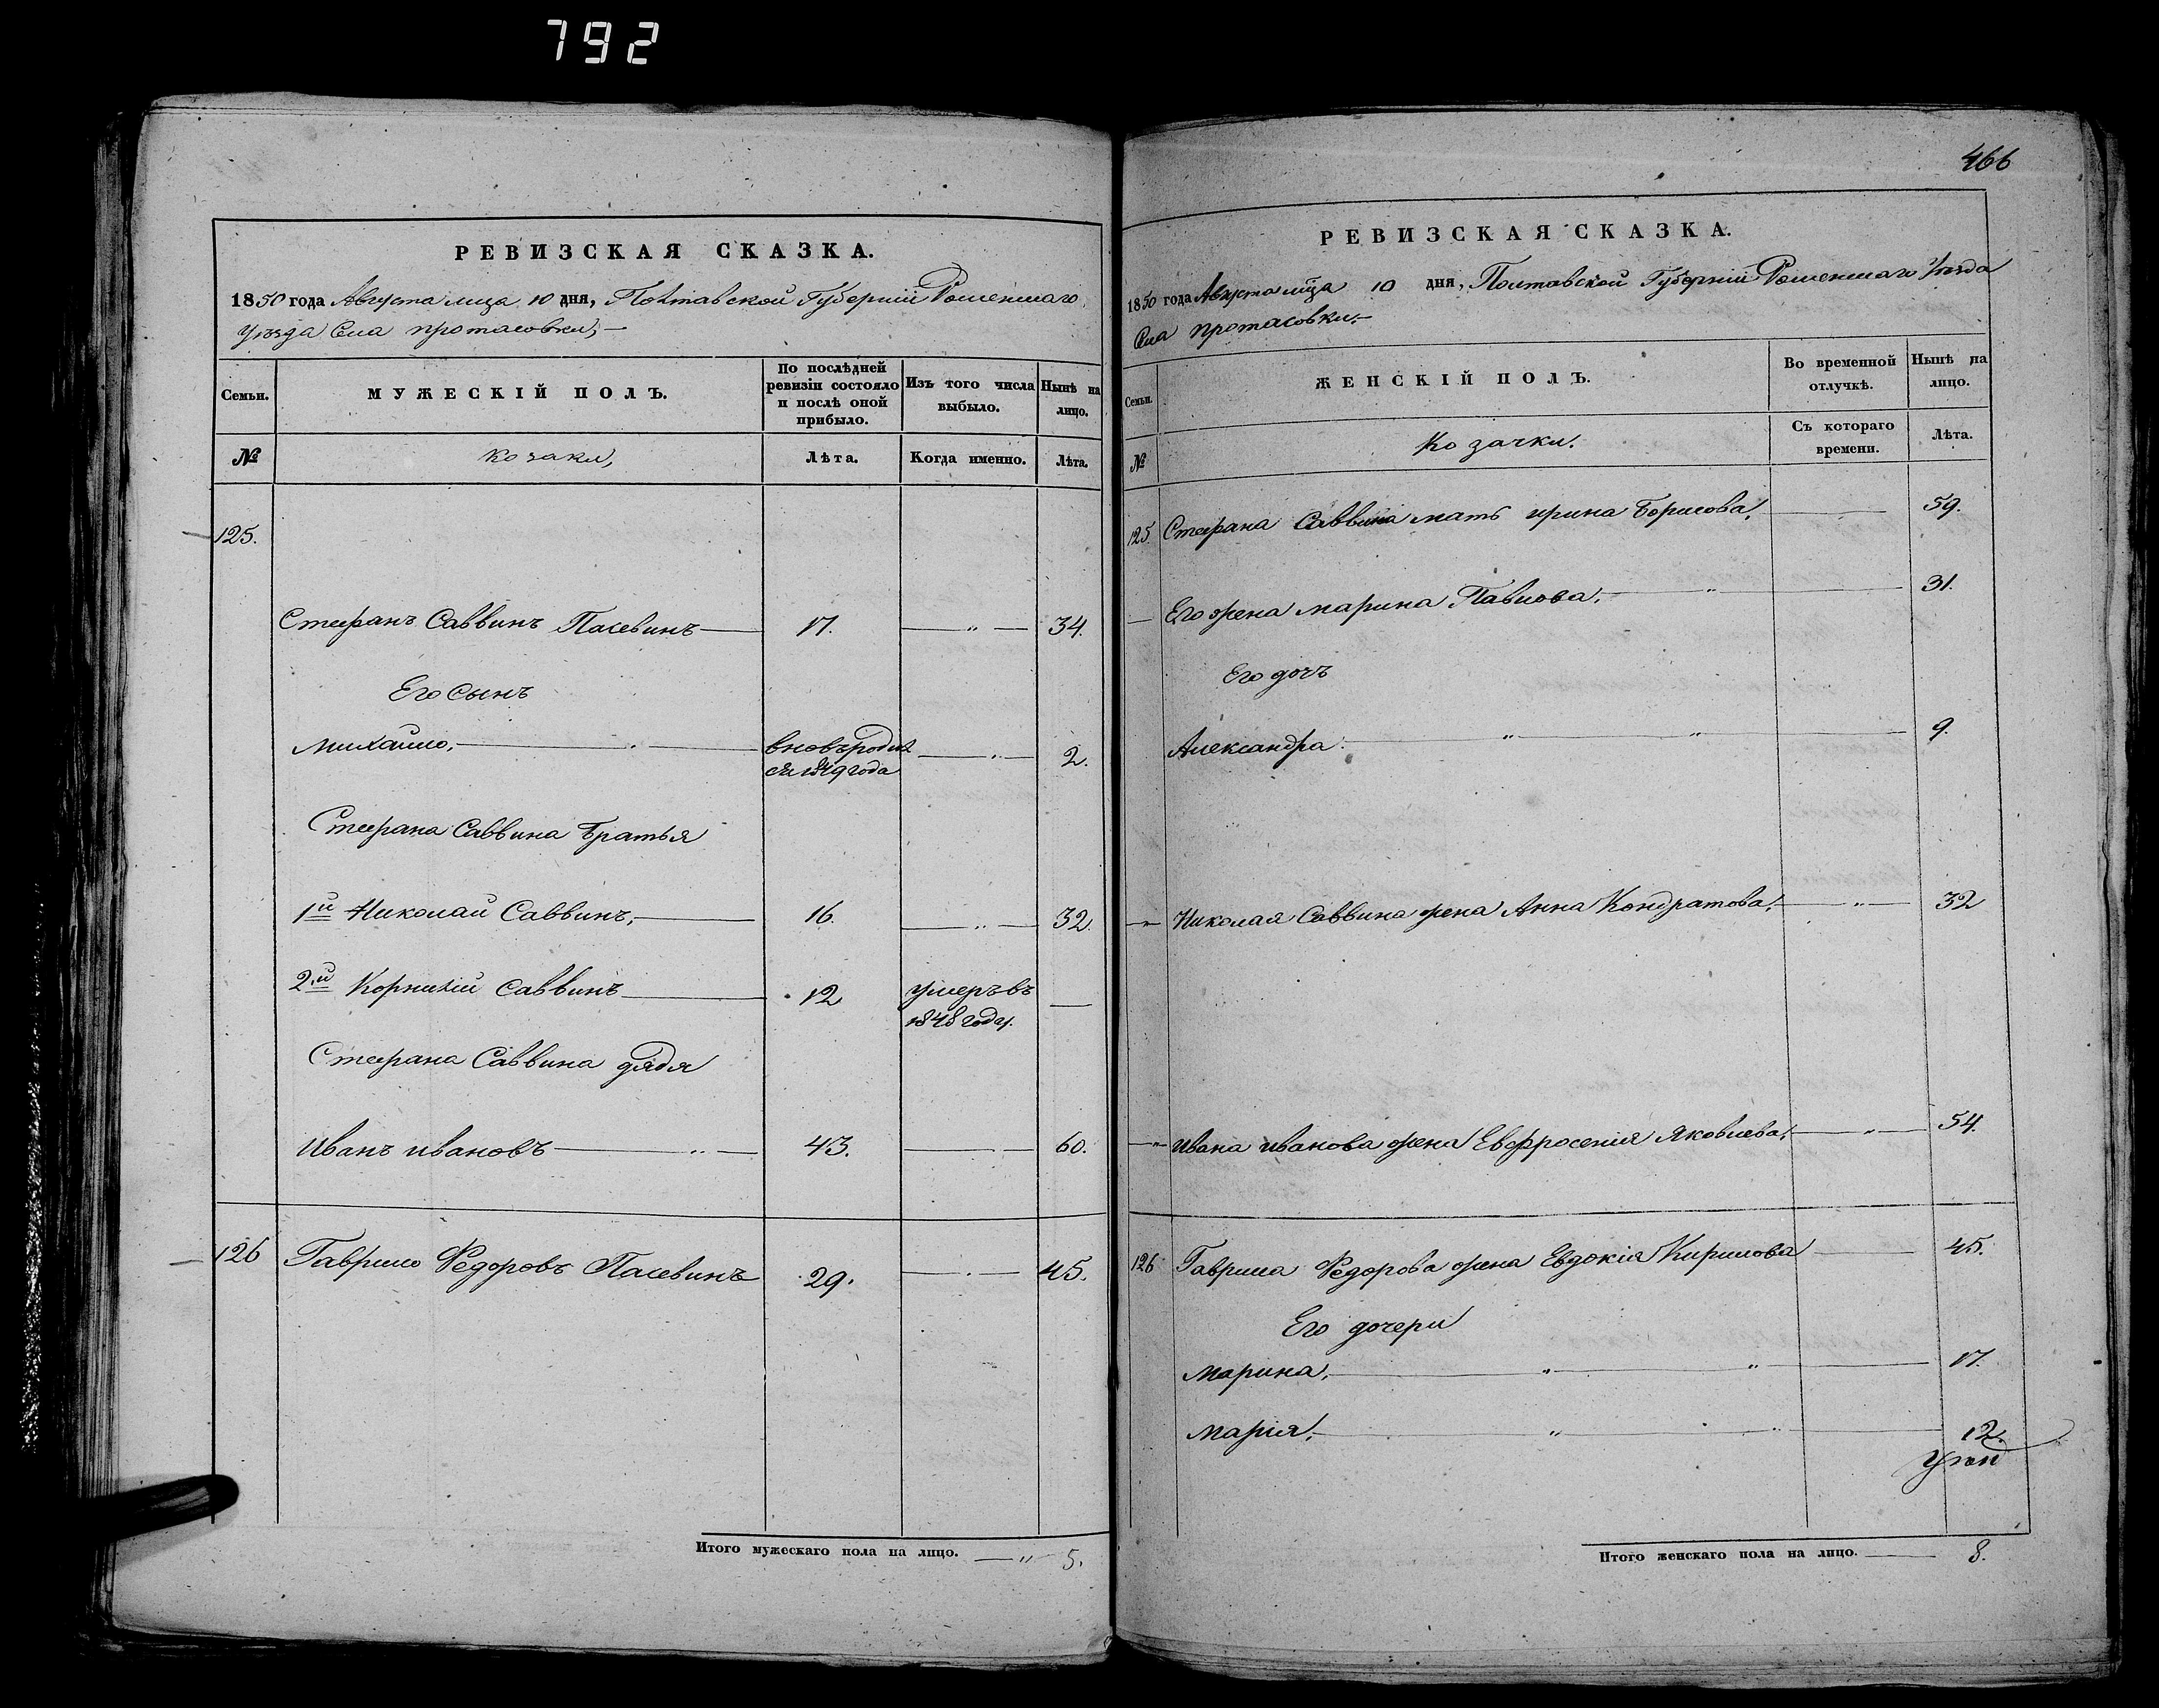 792
РЕВИЗСКАЯ СКАЗКА.
1850 года Августа мца 10 дня, Полтавской Губернiи Роменшаго
Уѣзда Села протасовки,
Семьи.
МУЖЕСКIЙ ПОЛЪ.
По послѣдней ревизiи состояло и послѣ оной прибыло.
Изъ того числа выбыло.
Нынѣ на лицо.
№
Козаки,
Лѣта.
Когда именно.
Лѣта.
125.
Стефанъ Саввинъ Пасевинъ 17. 34.
Его сынъ
михайло, вновь родил 2.
ся 1849 года
Стефана Саввина братья
1й Николай Саввинъ, 16. 32.
2й Корнилiй Саввинъ 12 умеръ въ
1848 году.
Стефана Саввина дядя
Иванъ ивановъ 43. 60.
126 Гаврило Федоровъ Пасевинъ 29. 45.
Итого мужескаго пола на лицо. 5.
466
РЕВИЗСКАЯ СКАЗКА.
1850 года Августа мца 10 дня, Полтавской Губернiи Роменшаго Уѣзда
Села протасовки.
Семьи.
ЖЕНСКIЙ ПОЛЪ.
Во временной отлучкѣ.
Нынѣ на лицо.
№
Козачки.
Съ котораго времени.
Лѣта.
125 Стефана Саввина мать ирина Борисова, 59.
Его жена марина Павлова, 31.
Его дочъ
Александра 9.
Николая Саввина жена Анна Кондратова, 32
Ивана иванова жена Евфросенiя Яковлева, 54.
126 Гаврила Федорова жена Евдокiя Кирилова 45.
Его дочери
марина, 17.
марiя, 12.
Итого женскаго пола на лицо. 8.